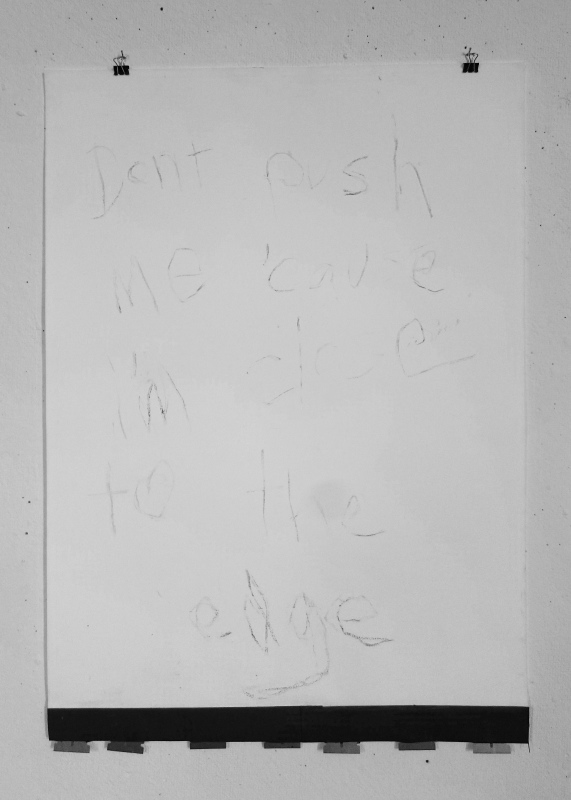 Dont push
me 'cause
i'm close
to the
edge